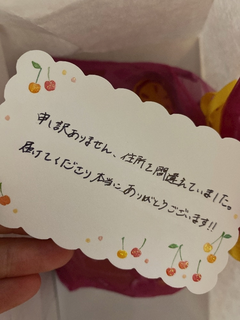 申し訳ありません、住所を間違えていました。
届けてくださり本当にありがとうございます!!